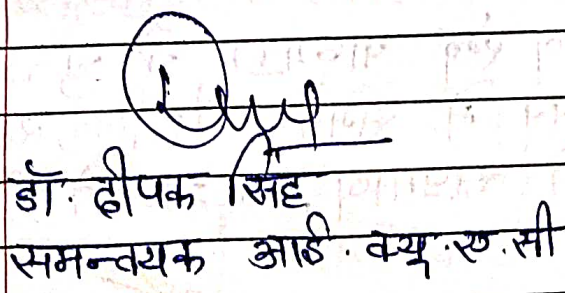 डॉ. दीपक सिंह
समन्वयक आई. क्यू. ए. सी